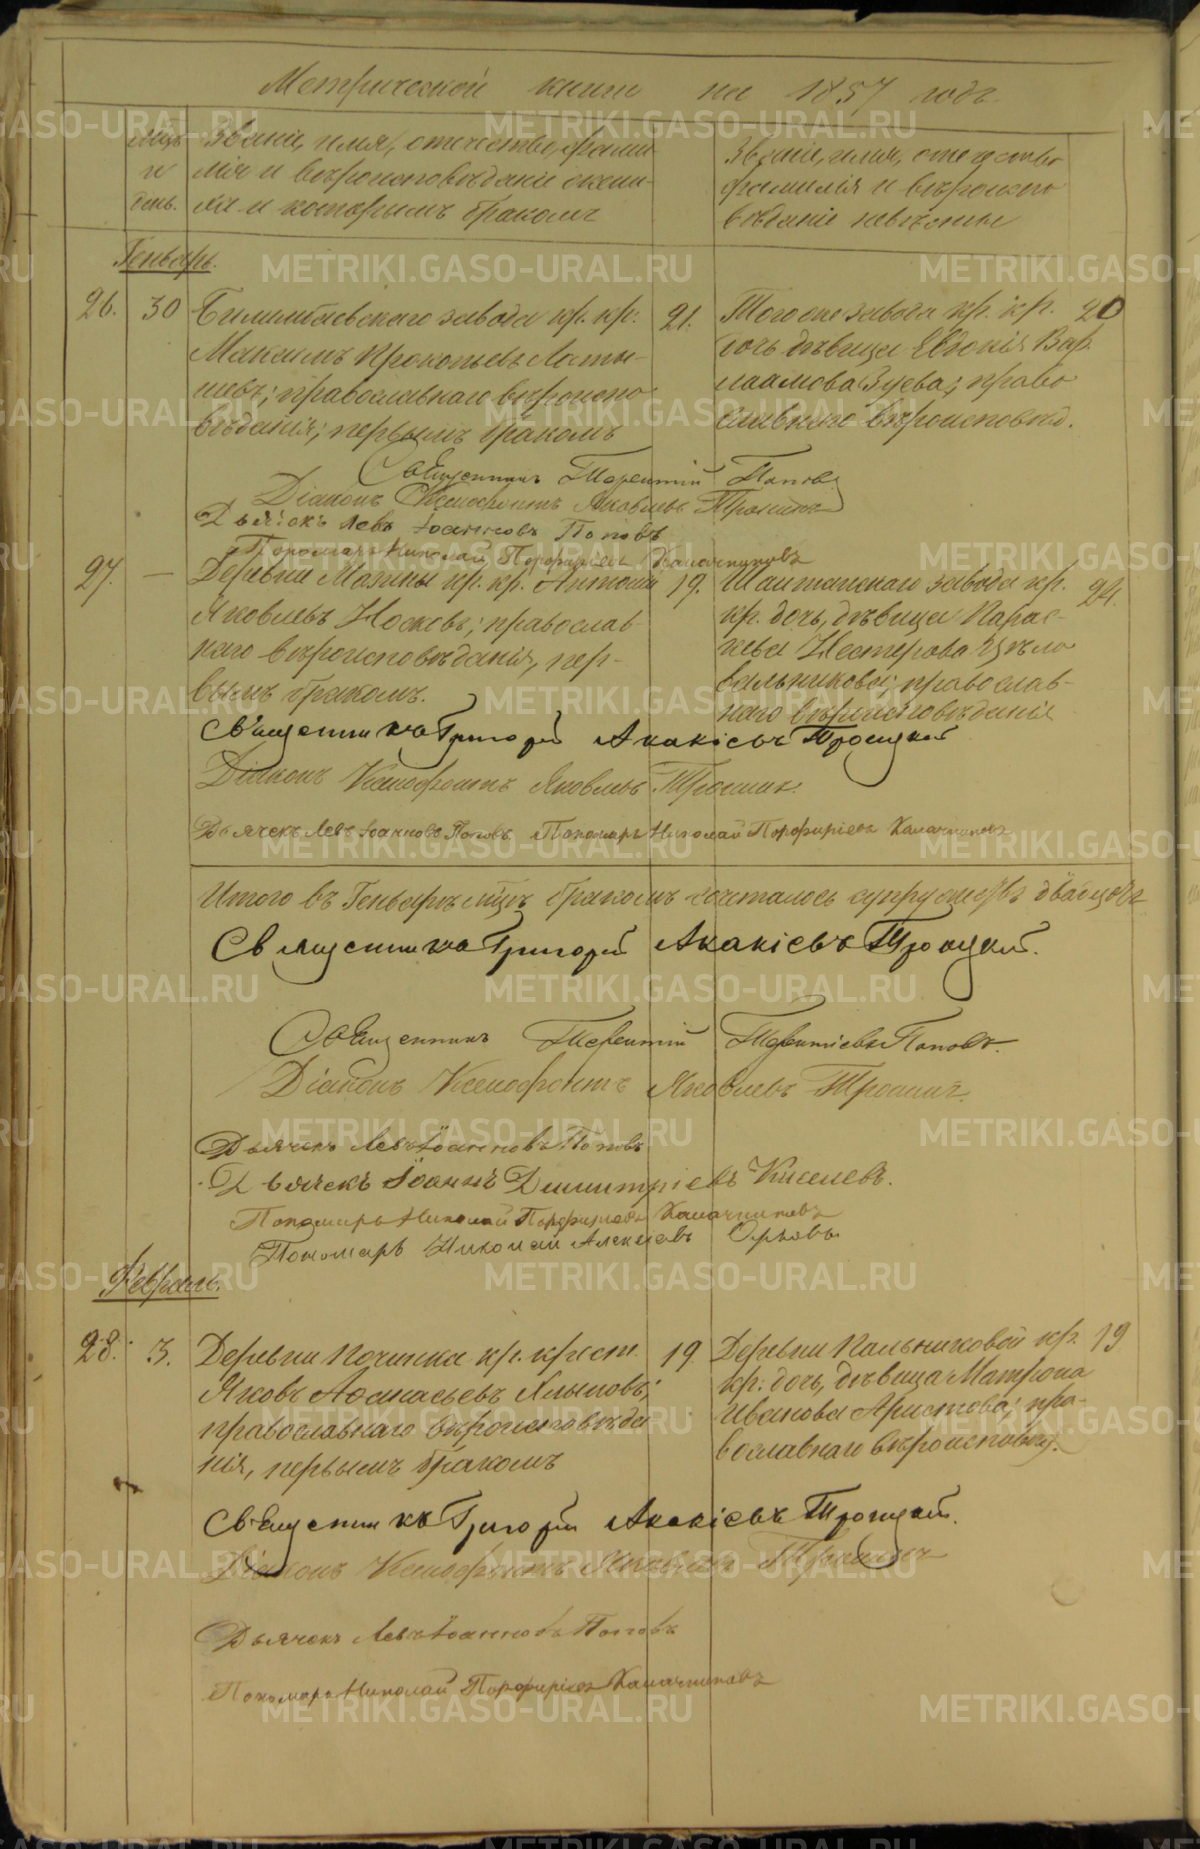 Метрической книги на 1857 годъ
Мѣц.
и
день.
Званіе, имя, отчество, фами-
лія и вѣроисповѣданіе жени-
ха и которымъ бракомъ
Званіе, имя, отчество
фамилія и вѣроиспо
вѣданіе невѣсты
Генварь.
26. 30 Билимбаевскаго завода кр. кр: 21.
Максимъ Прокопьевъ Латы-
шевъ; православнаго вѣроиспо-
вѣданія; первымъ бракомъ
Того же завода кр. кр. 20
дочь дѣвица Евдокія Вар
лаамова Зуева; право
славнаго вѣроисповѣд.
Священникъ Терентій Попов
Діаконъ Ксенофонтъ Яковлевъ
Дьячекъ Левъ Іоанновъ Поповъ
Пономарь Николай Порфиріевъ
27. — Деревни Мажины кр. кр. Антоній 19.
Яковлевъ Носковъ; православ-
наго вѣроисповѣданія, пер-
вымъ бракомъ.
Шайтанскаго завода кр.
кр. дочь, дѣвица Парас- 24.
кева Нестерова Цѣло
вальникова; православ-
наго вѣроисповѣданія
Священникъ Григорій Акакіевъ Троицкій
Діаконъ Ксенофонтъ Яковлевъ
Дьячекъ Левъ Іоанновъ Поповъ. Пономарь Николай Порфиріевъ
Итого въ Генварѣ мѣцѣ бракомъ сочеталось супружествъ двадцать
Священникъ Григорій Акакіевъ Троицкій.
Священникъ Терентій Терентіевъ Поповъ.
Діаконъ Ксенофонтъ Яковлевъ
Дьячекъ Левъ Іоанновъ Поповъ
Дьячекъ Іоаннъ Димитріевъ Киселевъ.
Пономарь Николай Порфиріевъ
Пономарь Николай Алексѣевъ
Февраль.
28. 3. Деревни Починка кр. крест. 19
Яковъ Аѳанасьевъ
православнаго вѣроисповѣда
нія, первымъ бракомъ
Деревни Кальниковой кр. 19
кр: дочь, дѣвица Матрона
Иванова Аристова; пра-
вославнаго вѣроисповѣд.
Священникъ Григорій Акакіевъ Троицкій.
Діаконъ Ксенофонтъ Яковлевъ
Дьячекъ Левъ Іоанновъ Поповъ
Пономарь Николай Порфиріевъ
METRIKI.GASO-URAL.RU